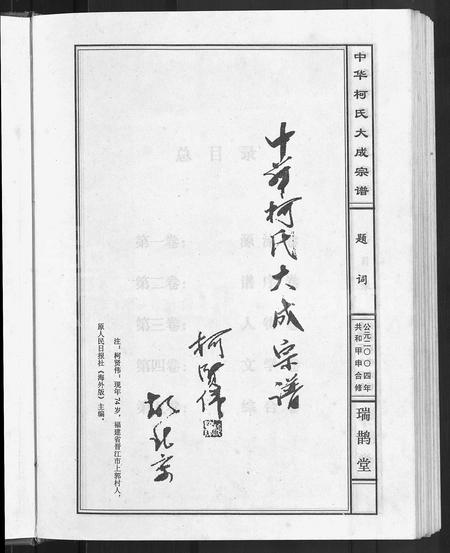 中华柯氏大成宗谱
题词
公元二〇〇四年
共和甲申合修
瑞鹊堂
中华柯氏大成宗谱
柯贤伟
注：柯贤伟：现年74岁，福建省晋江市上郭村人，
原人民日报社《海外版》主编。